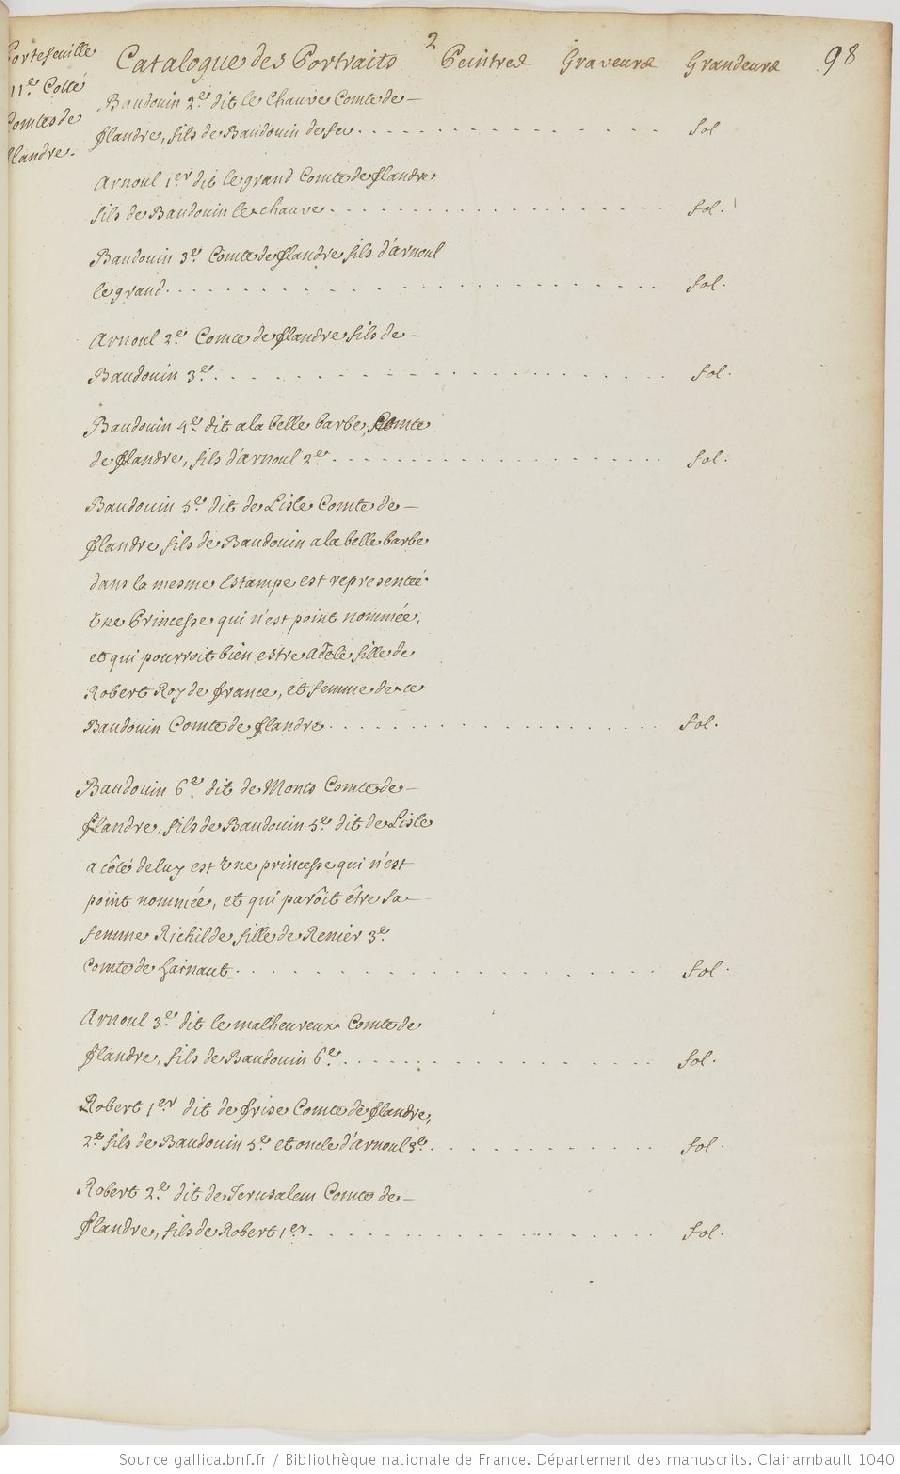 2
98
Portefeuille
11er Cotté
Comtes de
flandre.
Catalogue des Portraits Peintres Graveurs Grandeurs
Baudouin 2er dit le Chauve Comte de —
flandre, fils de Baudouin de fer . . . . . . . . . . . . . . . fol
Arnoul 1er dit le grand Comte de flandre,
fils de Baudouin le chauve . . . . . . . . . . . . . . . fol.
Baudouin 3er Comte de flandre fils d'arnoul
le grand . . . . . . . . . . . . . . . . . . . . fol.
Arnoul 2er Comte de flandre fils de —
Baudouin 3er . . . . . . . . . . . . . . . . . . fol.
Baudouin 4er dit a la belle barbe, Comte
de flandre, fils d'arnoul 2er . . . . . . . . . . . . . . . fol.
Baudouin 5er dit de Lisle Comte de —
flandre fils de Baudouin a la belle barbe
dans la mesme Estampe est representée
une Princesse qui n'est point nommée,
et qui pourroit bien estre Adele fille de
Robert Roy de france, et femme de ce
Baudouin Comte de flandre . . . . . . . . . . . . . . . fol.
Baudouin 6er dit de Monts Comte de —
flandre, fils de Baudouin 5er dit de Lisle
a côté de luy est une princesse qui n'est
point nommée, et qui paroît être sa —
femme Richilde fille de Renier 3er
Comte de hainaut . . . . . . . . . . . . . . . . . fol.
Arnoul 3er dit le malheureux Comte de
flandre, fils de Baudouin 6er . . . . . . . . . . . . . . . fol.
Robert 1er dit de frise Comte de flandre,
2e fils de Baudouin 5er et oncle d'arnoul 3er . . . . . . . . . . fol
Robert 2er dit de Jerusalem Comte de —
flandre, fils de Robert 1er . . . . . . . . . . . . . . . fol.
Source gallica.bnf.fr / Bibliothèque nationale de France. Département des manuscrits. Clairambault 1040